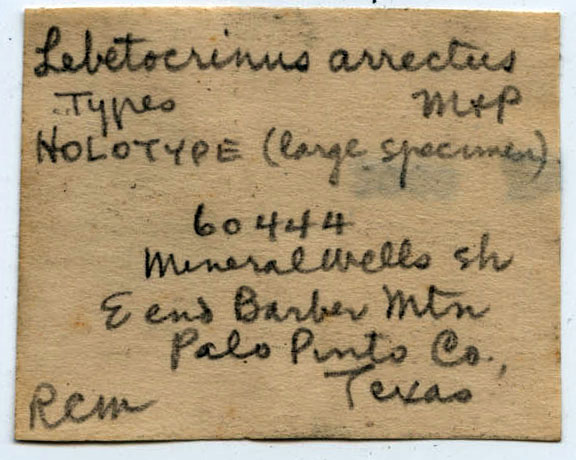 Lebetocrinus arrectus
Types M+P
HOLOTYPE (large specimen)
60444
Mineral Wells sh
E end Barber Mtn
Palo Pinto Co.,
Texas
RCM